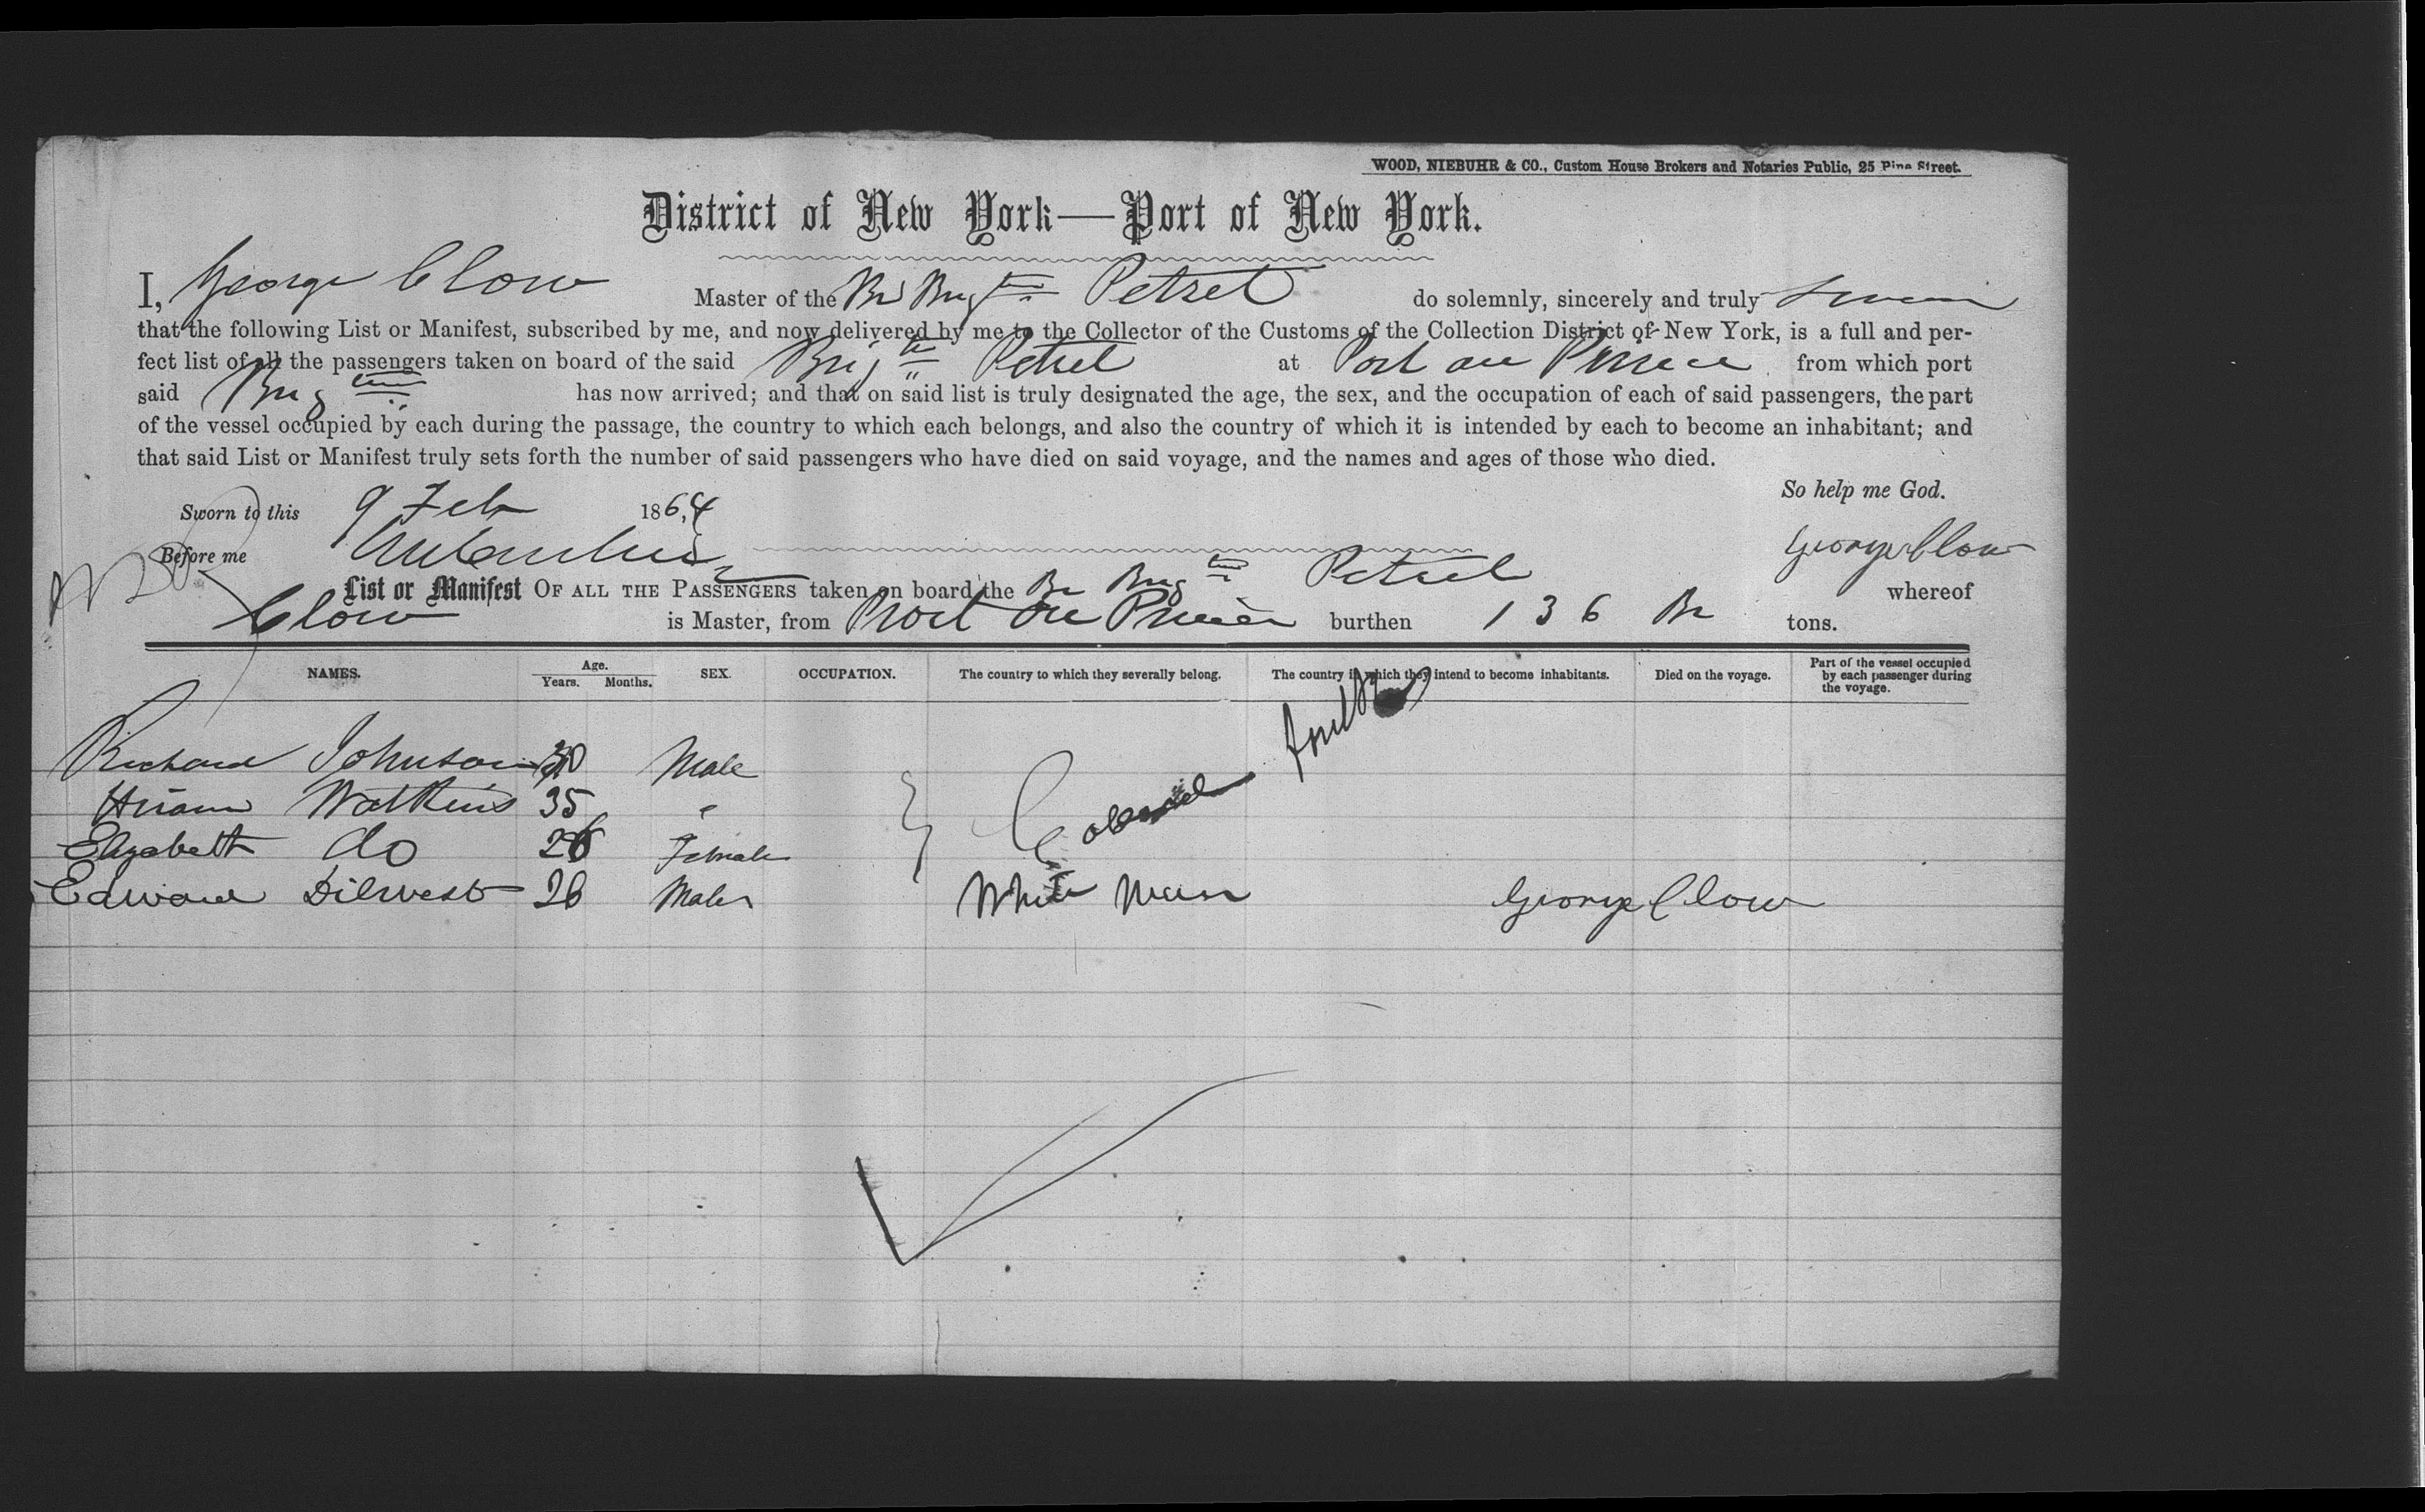 WOOD, NIEBUHR & CO., Custom House Brokers and Notaries Public, 25 Pine Street.
District of New York—Port of New York.
I, George Clow Master of the Br Brig tn Petrel do solemnly, sincerely and truly swear
that the following List or Manifest, subscribed by me, and now delivered by me to the Collector of the Customs of the Collection District of New York, is a full and per-
fect list of all the passengers taken on board of the said Brig tn Petrel at Port au Prince from which port
said Brig tn has now arrived; and that on said list is truly designated the age, the sex, and the occupation of each of said passengers, the part
of the vessel occupied by each during the passage, the country to which each belongs, and also the country of which it is intended by each to become an inhabitant; and
that said List or Manifest truly sets forth the number of said passengers who have died on said voyage, and the names and ages of those who died.
So help me God.
Sworn to this 9 Feb 1864
Before me George Clow
List or Manifest OF ALL THE PASSENGERS taken on board the Br Brig tn Petrel whereof
Clow is Master, from Port au Prince burthen 136 Br tons.
NAMES. Age. Years. Months. SEX. OCCUPATION. The country to which they severally belong. The country in which they intend to become inhabitants. Died on the voyage. Part of the vessel occupied by each passenger during the voyage.
Richard Johnson 30 Male
Hiram Watkins 35 "
Elizabeth do 26 Female
Edward Dilwest 26 Male White Man George Clow